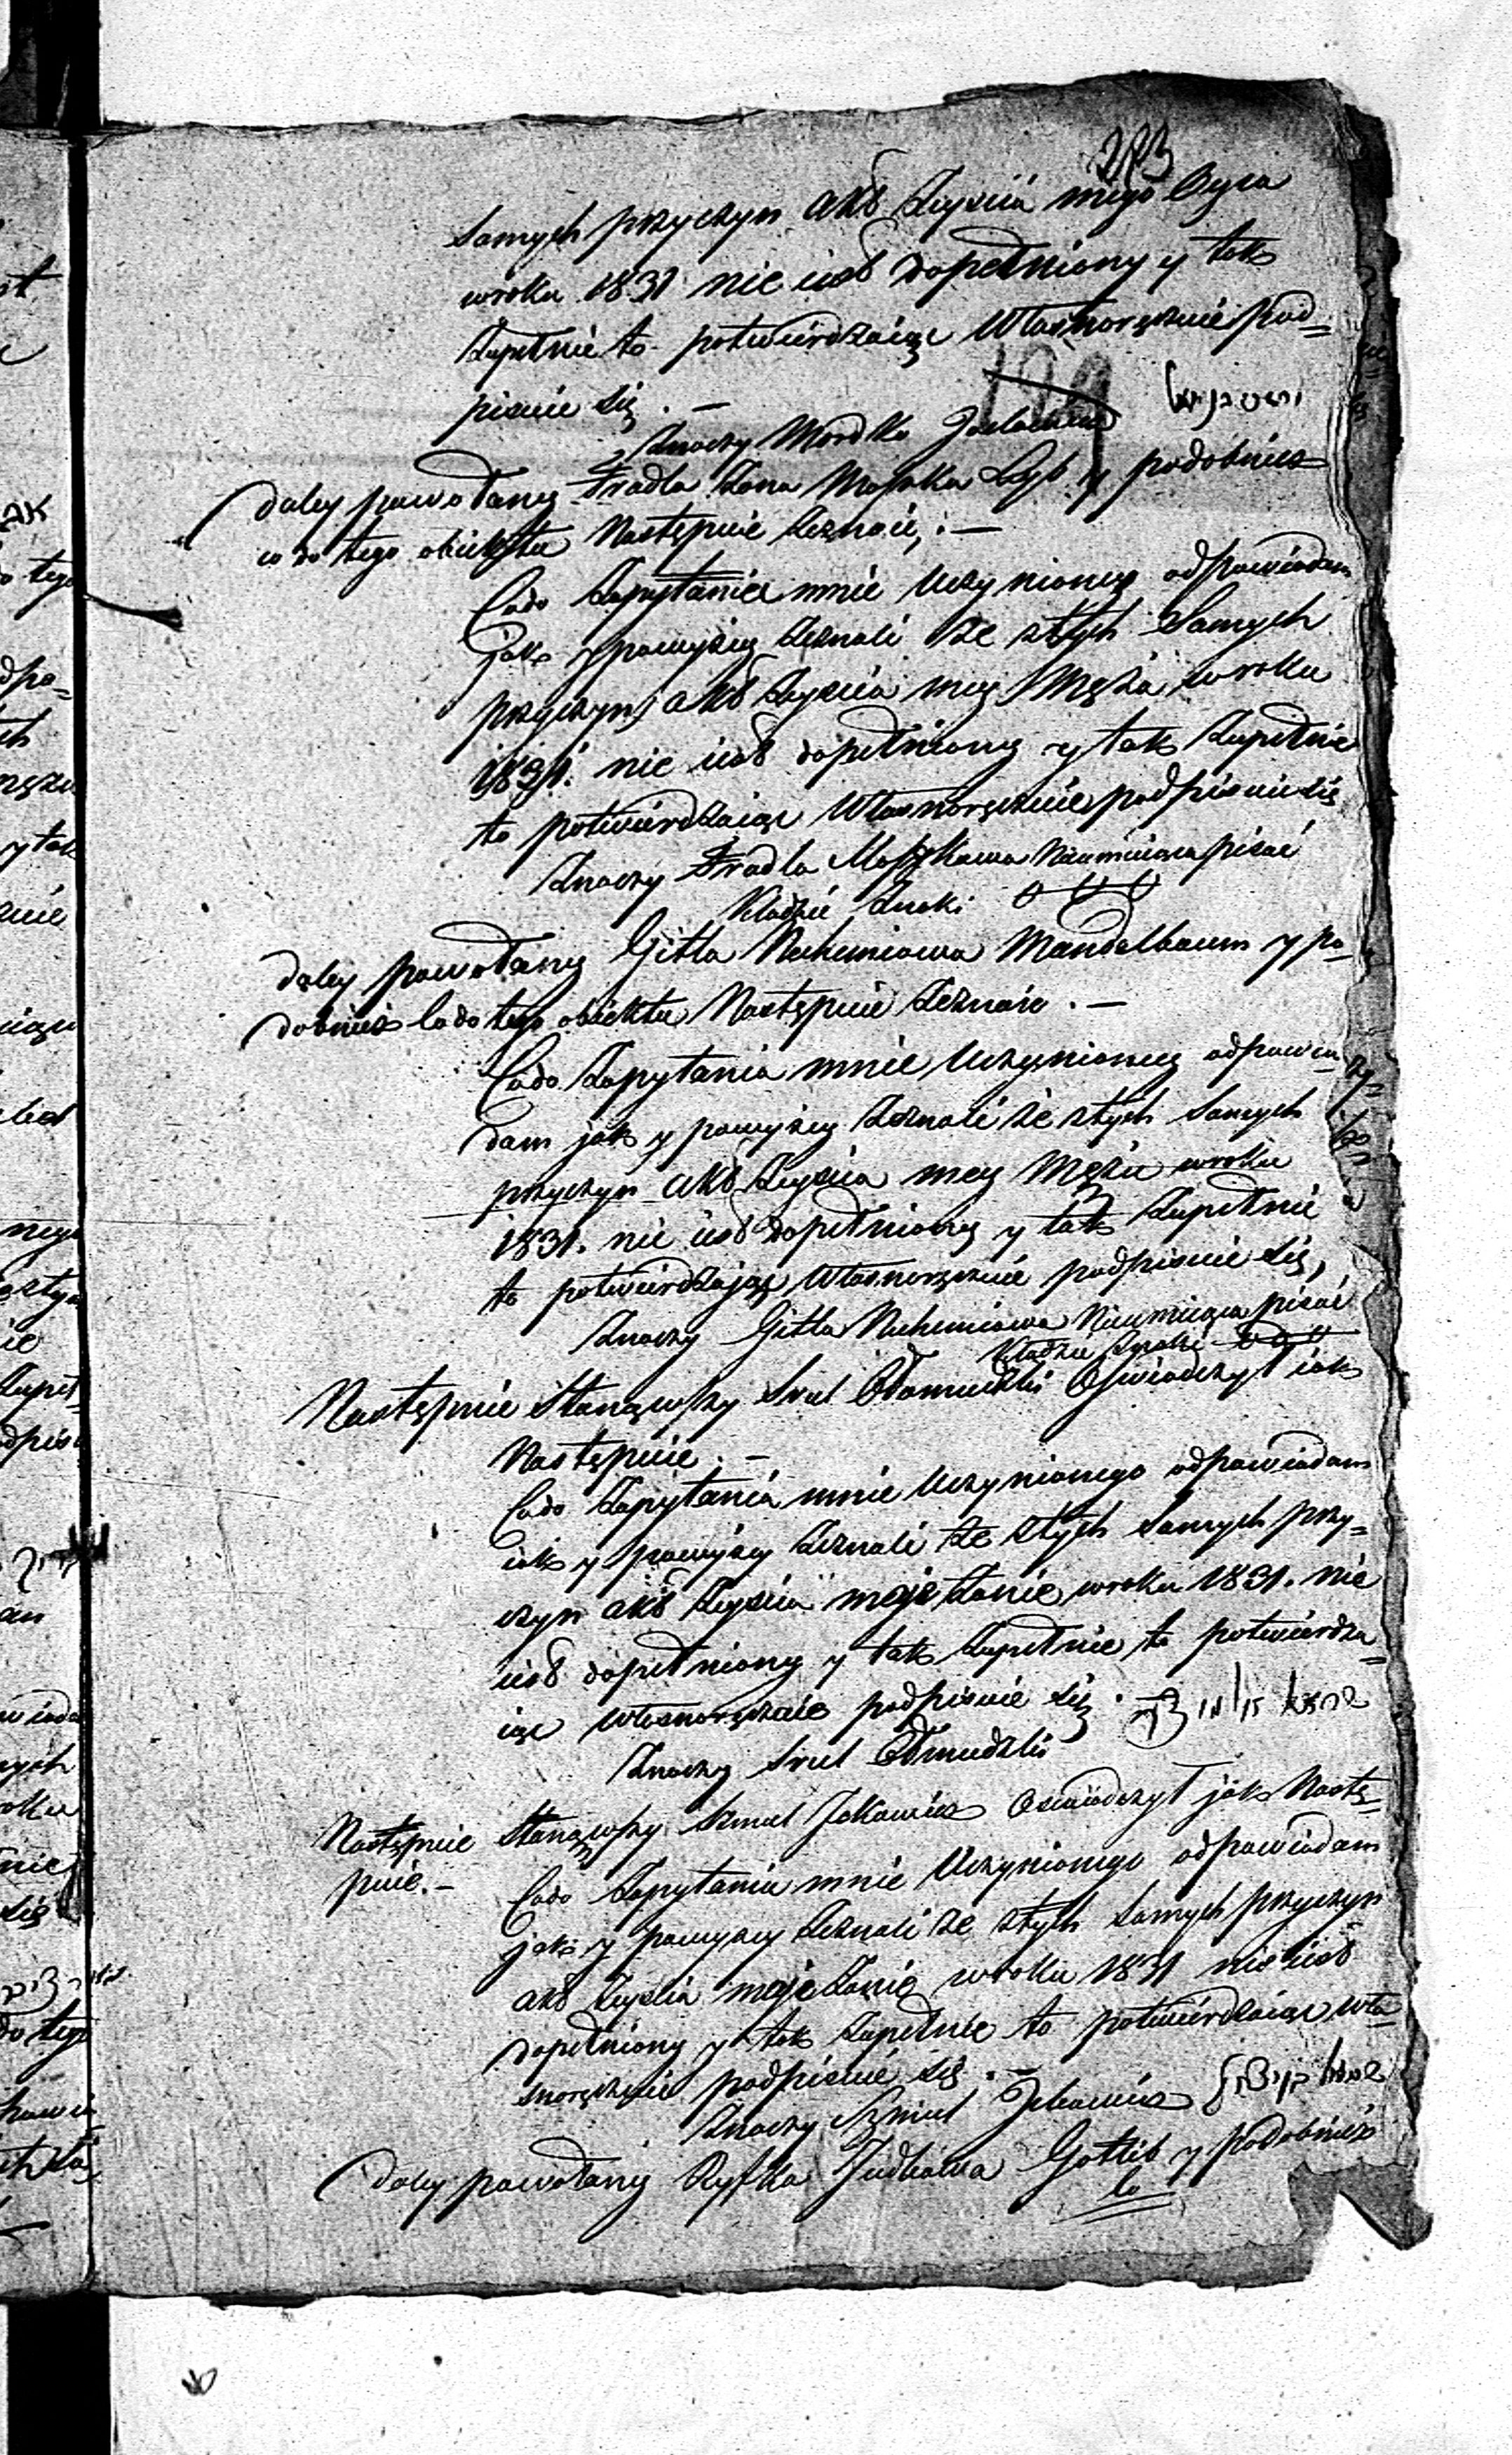 samych przyczyn akt zeyścia mego Oyca
w roku 1831 nie iest dopełniony y tak
zupełnie to potwierdzaiąc własnoręcznie pod=
pisuie się . —
Znaczy Mordka
daley powołany Fradla żona Moszka Lyb y podobnież
co do tego obiektu następnie zeznaie, . —
Co do zapytania mnie uczynioney odpowiadam
jak y powyżey zeznali że z tych samych
przyczyn akt zeyścia mey męża w roku
1831. nie iest dopełniony y tak zupełnie
to potwierdzaiąc własnoręcznie podpisuie się
Znaczy Fradla Moszkowa nieumieiąca pisać
kładzie znaki o o o
daley powołany Gitla Nuchemiowa Mandelbaum y po=
dobnież co do tego obiektu następnie zeznaie . —
Co do zapytania mnie uczynioney odpowia=
dam jak y powyżey zeznali że z tych samych
przyczyn akt zeyścia mey męża w roku
1831. nie iest dopełniony y tak zupełnie
to potwierdzając własnoręcznie podpisuie się,
Znaczy Gitla Nuchemiowa nieumieiąca pisać
kładzie znaki o o o
Następnie stanąwszy Srul oświadczył iak
następuie . —
Co do zapytania mnie uczynionego odpowiadam
iak y powyżey zeznali że z tych samych przy=
czyn akt zeyścia moje żonie w roku 1831. nie
iest dopełniony y tak zupełnie to potwierdza=
iąc własnoręcznie podpisuie się .
Znaczy Srul
Następnie stanąwszy Szmul Jckowicz oświadczył jak nastę=
puie. —
Co do zapytania mnie uczynionego odpowiadam
jak y powyżey zeznali że z tych samych przyczyn
akt zeyścia moje żonie w roku 1831 nie iest
dopełniony y tak zupełnie to potwierdzaiąc wła=
snoręcznie podpisuie się . —
Znaczy Szmul Jckowicz
daley powołany Ryfka Judkowa Gotlib y podobnież
co